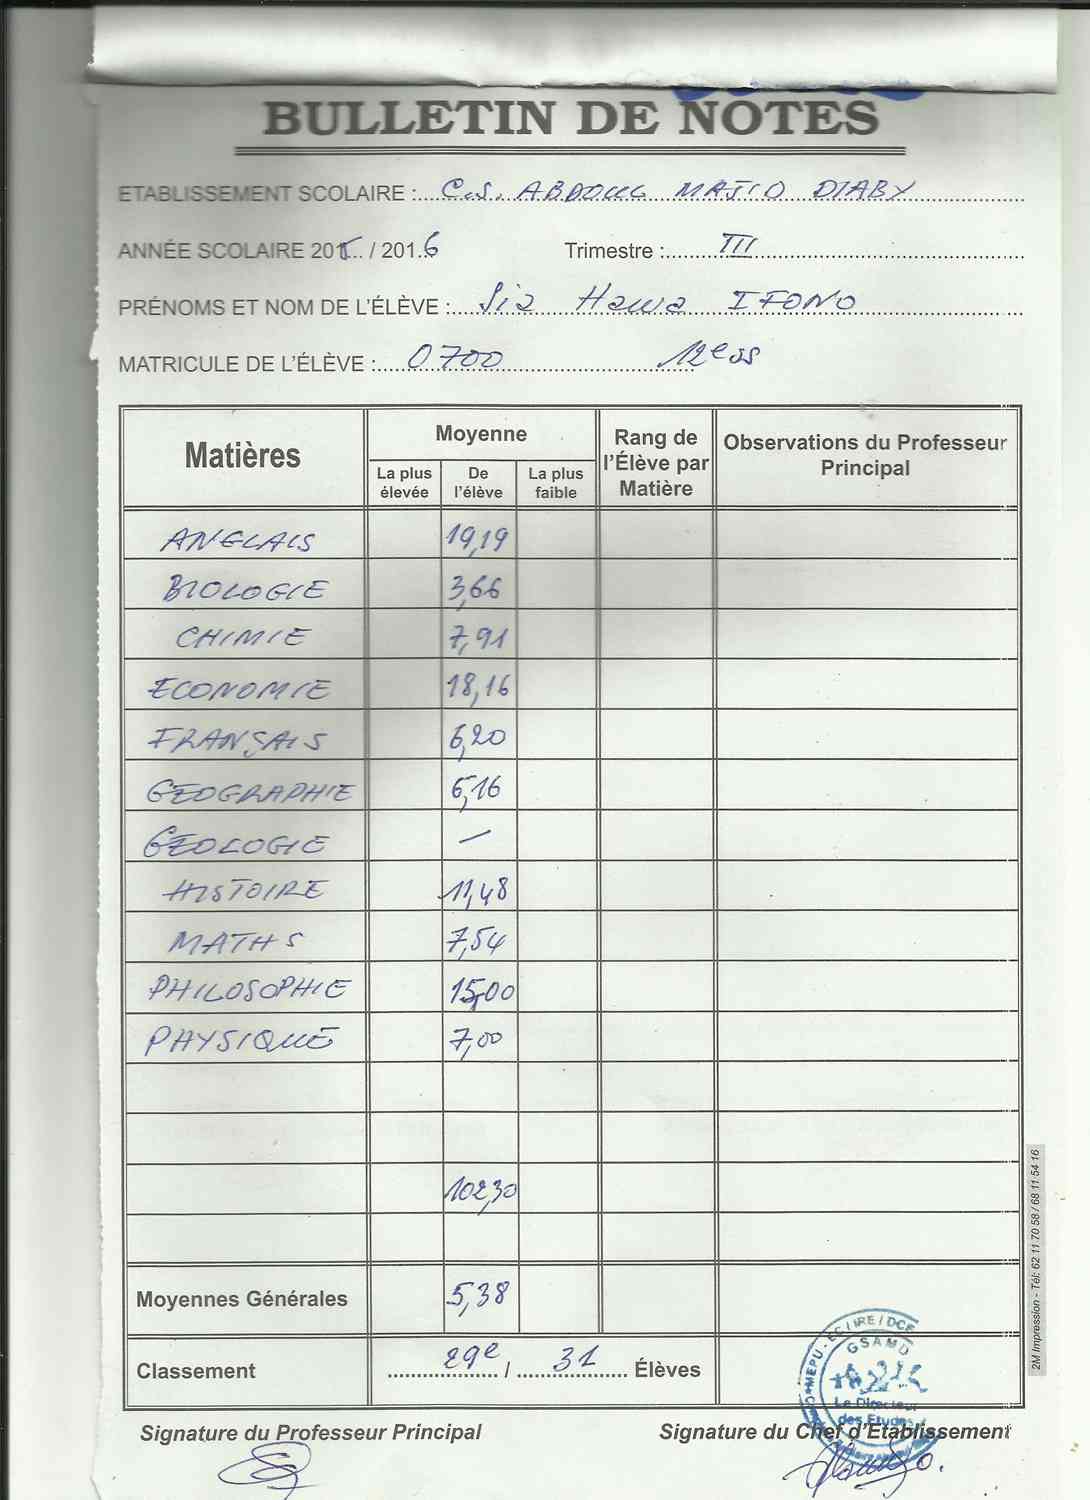 BULLETIN DE NOTES
ETABLISSEMENT SCOLAIRE : C.S. ABDOUL MAJID DIABY
ANNÉE SCOLAIRE 2015 / 2016 Trimestre : III
PRÉNOMS ET NOM DE L'ÉLÈVE : Sia Hawa IFONO
MATRICULE DE L'ÉLÈVE : 0700 12e SS
Matières Moyenne Rang de l'Élève par Matière Observations du Professeur Principal
La plus élevée De l'élève La plus faible
ANGLAIS 19,19
BIOLOGIE 3,66
CHIMIE 7,91
ECONOMIE 18,16
FRANÇAIS 6,20
GEOGRAPHIE 6,16
GEOLOGIE —
HISTOIRE 11,48
MATHS 7,54
PHILOSOPHIE 15,00
PHYSIQUE 7,00
102,30
Moyennes Générales 5,38
Classement 29e / 31 Élèves
Signature du Professeur Principal Signature du Chef d'Etablissement
GSAMD
Le Directeur
des Etudes
2M Impression - Tél: 62 11 70 58 / 68 11 54 16